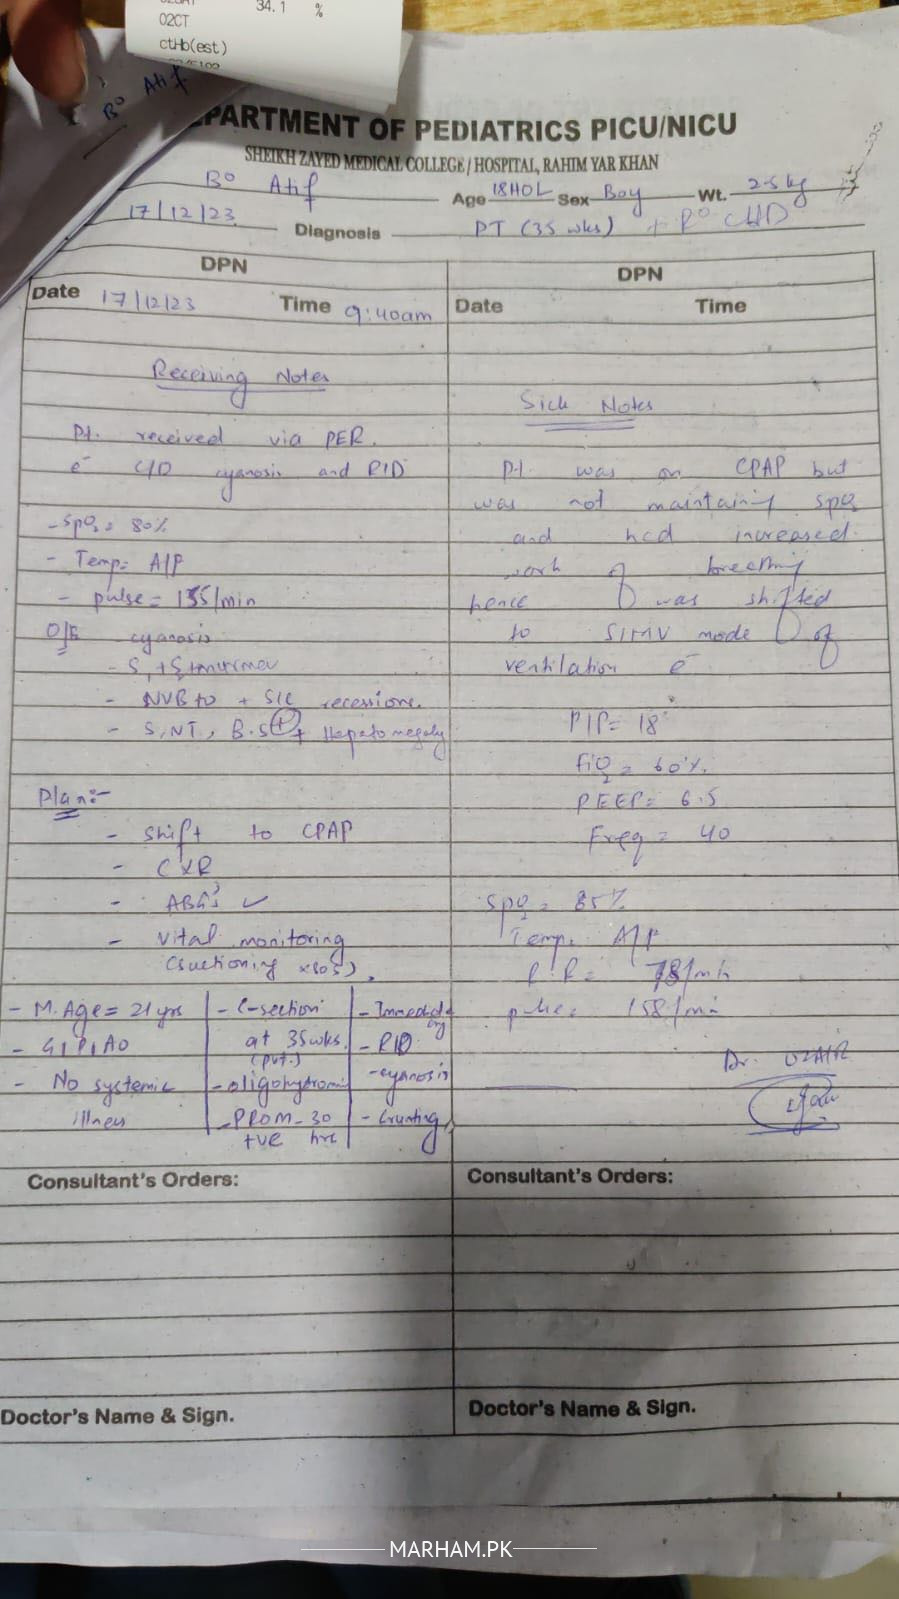 34.1 %
O2CT
ctHb(est)
B° Atif
DEPARTMENT OF PEDIATRICS PICU/NICU
SHEIKH ZAYED MEDICAL COLLEGE / HOSPITAL, RAHIM YAR KHAN
B° Atif Age 18HOL Sex Boy Wt. 2.5 kg
17/12/23 Diagnosis PT (35 wks) + R° CHD
DPN
Date 17/12/23 Time 9:40am
Receiving Notes
Pt. received via PER.
c̄ C/O cyanosis and RD
- SpO2 = 80%
- Temp= A/F
- pulse = 135/min
O/E cyanosis
- S1+S2+murmur
- NVB to + S/C recessions.
- S, NT, B.S + + Hepatomegaly
Plan:-
- Shift to CPAP
- CXR
- ABG's ✓
- Vital monitoring
(suctioning x SOS).
- M. Age = 21 yrs
- G1P1A0
- No systemic
illness
- C-section
at 35wks.
- oligohydromi
- PROM - 30
+ve hrs
- Immediate
cry
- RD
- cyanosis
- Grunting
Consultant's Orders:
Doctor's Name & Sign.
DPN
Date Time
Sick Notes
Pt. was on CPAP but
was not maintaining SpO2
and had increased
work of breathing
hence was shifted
to SIMV mode of
ventilation c̄
PIP= 18
FiO2 = 60%.
PEEP= 6.5
Freq = 40
SpO2 = 85%
Temp. A/F
R.R = 78/min
pulse = 158/min
Dr. UZAIR
Consultant's Orders:
Doctor's Name & Sign.
MARHAM.PK